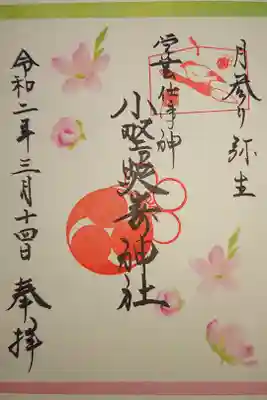 月参り 弥生
学芸仕事神
小野照崎神社
令和二年三月十四日
奉拝